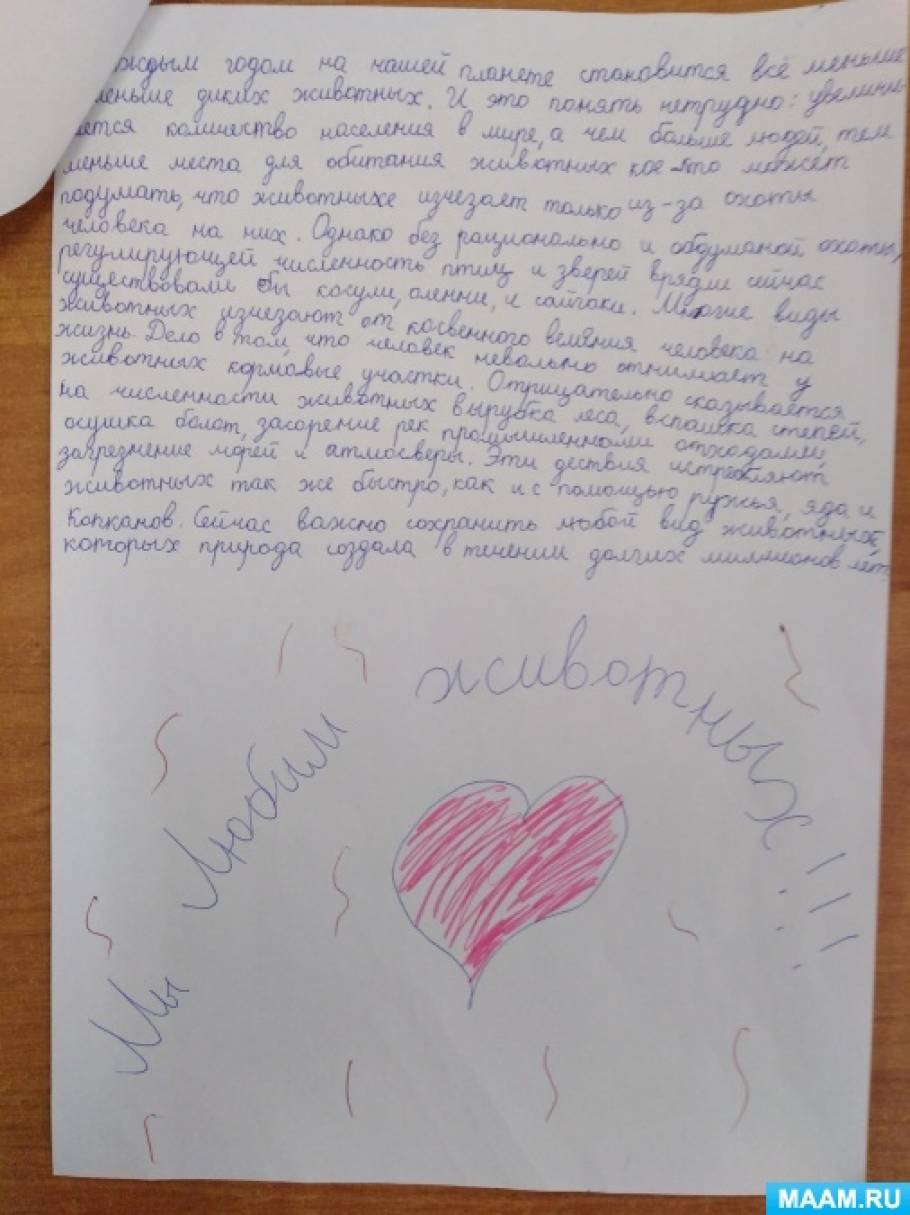 ждым годом на нашей планете становится всё меньше
меньше диких животных. И это понять нетрудно: увеличи
ается количество населения в мире, а чем больше людей, тем
меньше места для обитания животных кое-кто может
подумать, что животныхе изчезает только из-за охоты
человека на них. Однако без рационально и обдуманой охоты,
регулирующей численность птиц и зверей врядли сейчас
существовали бы косули, оленни, и сайгаки. Многие виды
животных изчезают от косвенного велияния человека на
жизнь. Дело в том, что человек невольно отнимает у
животных кормовые участки. Отрицательно сказывается
на численности животных вырубка леса, вспашка степей,
осушка болот, засорение рек промышленными отходами,
загрезнение морей и атмосверы. Эти дествия истребляют
животных так же быстро, как и с помощью ружья, яда и
копканов. Сейчас важно сохранить любой вид животных,
которых природа создала в течении долгих миллионов лет.
Мы Любим животных!!!
MAAM.RU